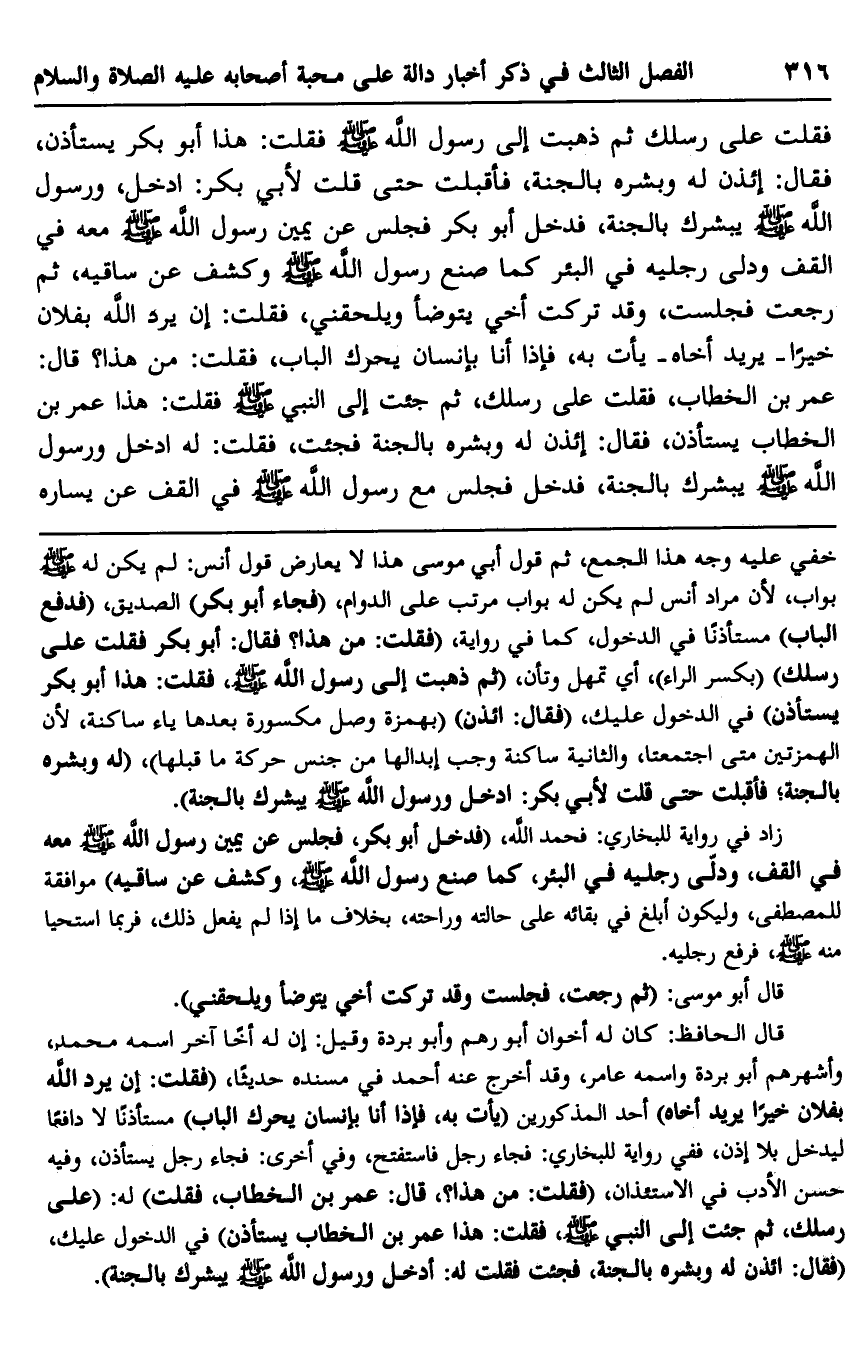 ٣١٦ الفصل الثالث في ذكر أخبار دالة على محبة أصحابه عليه الصلاة والسلام
فقلت على رسلك ثم ذهبت إلى رسول اللَّه ﷺ فقلت: هذا أبو بكر يستأذن،
فقال: إئذن له وبشره بالجنة، فأقبلت حتى قلت لأبي بكر: ادخل، ورسول
اللَّه ﷺ يبشرك بالجنة، فدخل أبو بكر فجلس عن يمين رسول اللَّه ﷺ معه في
القف ودلى رجليه في البئر كما صنع رسول اللَّه ﷺ وكشف عن ساقيه، ثم
رجعت فجلست، وقد تركت أخي يتوضأ ويلحقني، فقلت: إن يرد اللَّه بفلان
خيرًا ـ يريد أخاه ـ يأت به، فإذا أنا بإنسان يحرك الباب، فقلت: من هذا؟ قال:
عمر بن الخطاب، فقلت على رسلك، ثم جئت إلى النبي ﷺ فقلت: هذا عمر بن
الخطاب يستأذن، فقال: إئذن له وبشره بالجنة فجئت، فقلت: له ادخل ورسول
اللَّه ﷺ يبشرك بالجنة، فدخل فجلس مع رسول اللَّه ﷺ في القف عن يساره
خفي عليه وجه هذا الجمع، ثم قول أبي موسى هذا لا يعارض قول أنس: لم يكن له ﷺ
بواب، لأن مراد أنس لم يكن له بواب مرتب على الدوام، (فجاء أبو بكر) الصديق، (فدفع
الباب) مستأذنًا في الدخول، كما في رواية، (فقلت: من هذا؟ فقال: أبو بكر فقلت على
رسلك) (بكسر الراء)، أي تمهل وتأن، (ثم ذهبت إلى رسول اللَّه ﷺ، فقلت: هذا أبو بكر
يستأذن) في الدخول عليك، (فقال: ائذن) (بهمزة وصل مكسورة بعدها ياء ساكنة، لأن
الهمزتين متى اجتمعتا، والثانية ساكنة وجب إبدالها من جنس حركة ما قبلها)، (له وبشره
بالجنة؛ فأقبلت حتى قلت لأبي بكر: ادخل ورسول اللَّه ﷺ يبشرك بالجنة).
زاد في رواية للبخاري: فحمد اللَّه، (فدخل أبو بكر، فجلس عن يمين رسول اللَّه ﷺ معه
في القف، ودلّى رجليه في البئر، كما صنع رسول اللَّه ﷺ، وكشف عن ساقيه) موافقة
للمصطفى، وليكون أبلغ في بقائه على حالته وراحته، بخلاف ما إذا لم يفعل ذلك، فربما استحيا
منه ﷺ، فرفع رجليه.
قال أبو موسى: (ثم رجعت، فجلست وقد تركت أخي يتوضأ ويلحقني).
قال الحافظ: كان له أخوان أبو رهم وأبو بردة وقيل: إن له أخًا آخر اسمه محمد،
وأشهرهم أبو بردة واسمه عامر، وقد أخرج عنه أحمد في مسنده حديثًا، (فقلت: إن يرد اللَّه
بفلان خيرًا يريد أخاه) أحد المذكورين (يأت به، فإذا أنا بإنسان يحرك الباب) مستأذنًا لا دافعًا
ليدخل بلا إذن، ففي رواية للبخاري: فجاء رجل فاستفتح، وفي أخرى: فجاء رجل يستأذن، وفيه
حسن الأدب في الاستئذان، (فقلت: من هذا؟، قال: عمر بن الخطاب، فقلت) له: (على
رسلك، ثم جئت إلى النبي ﷺ، فقلت: هذا عمر بن الخطاب يستأذن) في الدخول عليك،
(فقال: ائذن له وبشره بالجنة، فجئت فقلت له: أدخل ورسول اللَّه ﷺ يبشرك بالجنة).